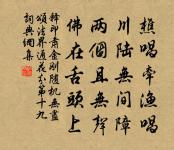 樵唱牽漁唱
川陸無間障
兩個且無聲
佛在舌頭上
釋印肅金剛隨機無盡
頌法界通花分第十九
詞典網集